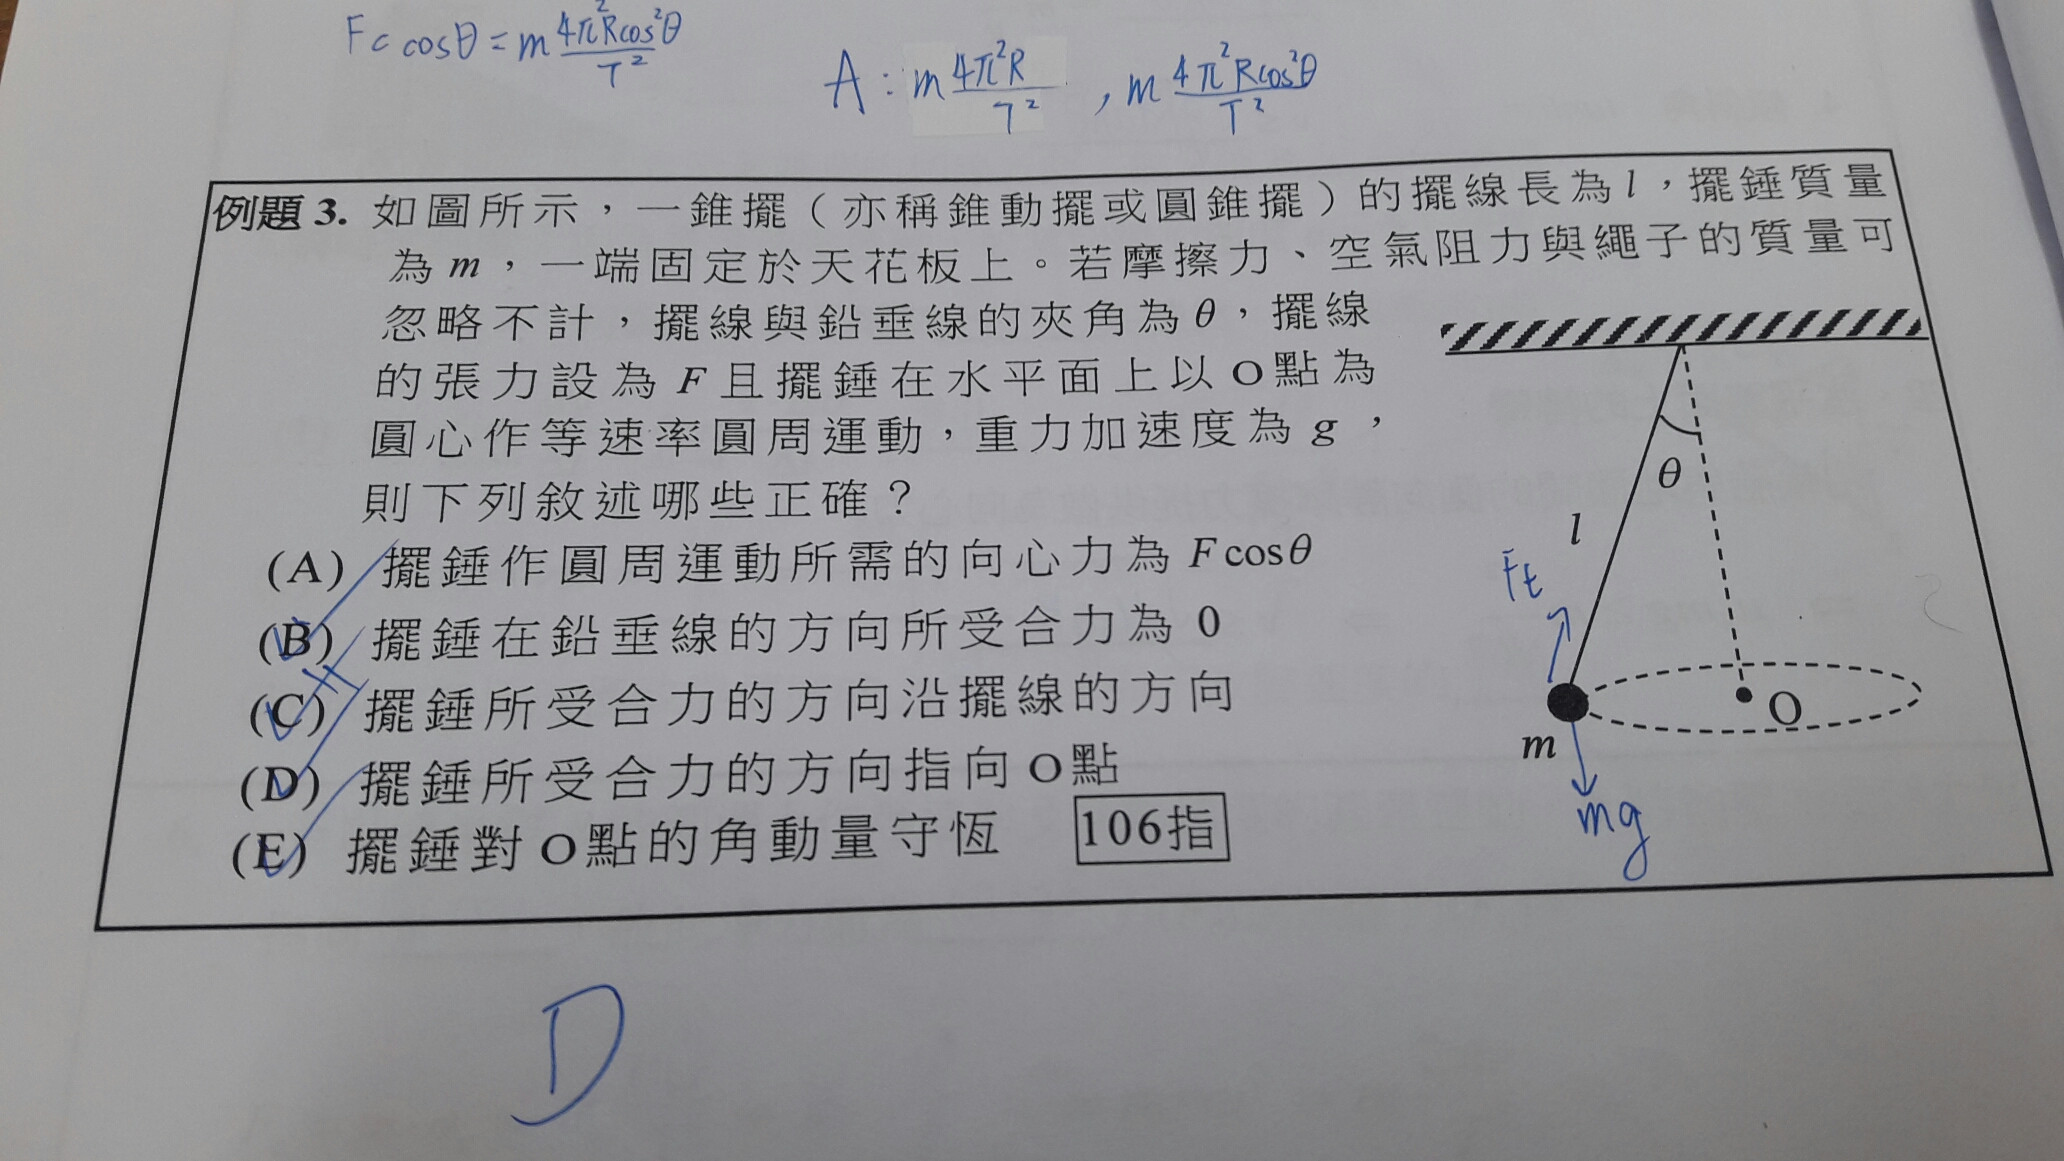 Fc cosθ = m 4π²Rcos²θ / T²
A : m 4π²R / T² , m 4π²Rcos²θ / T²
例題 3. 如圖所示，一錐擺（亦稱錐動擺或圓錐擺）的擺線長為 l，擺錘質量
為 m，一端固定於天花板上。若摩擦力、空氣阻力與繩子的質量可
忽略不計，擺線與鉛垂線的夾角為 θ，擺線
的張力設為 F 且擺錘在水平面上以 O 點為
圓心作等速率圓周運動，重力加速度為 g，
則下列敘述哪些正確？
(A) 擺錘作圓周運動所需的向心力為 F cosθ
(B) 擺錘在鉛垂線的方向所受合力為 0
(C) 擺錘所受合力的方向沿擺線的方向
(D) 擺錘所受合力的方向指向 O 點
(E) 擺錘對 O 點的角動量守恆 106指
θ
l
Ft
O
m
mg
D